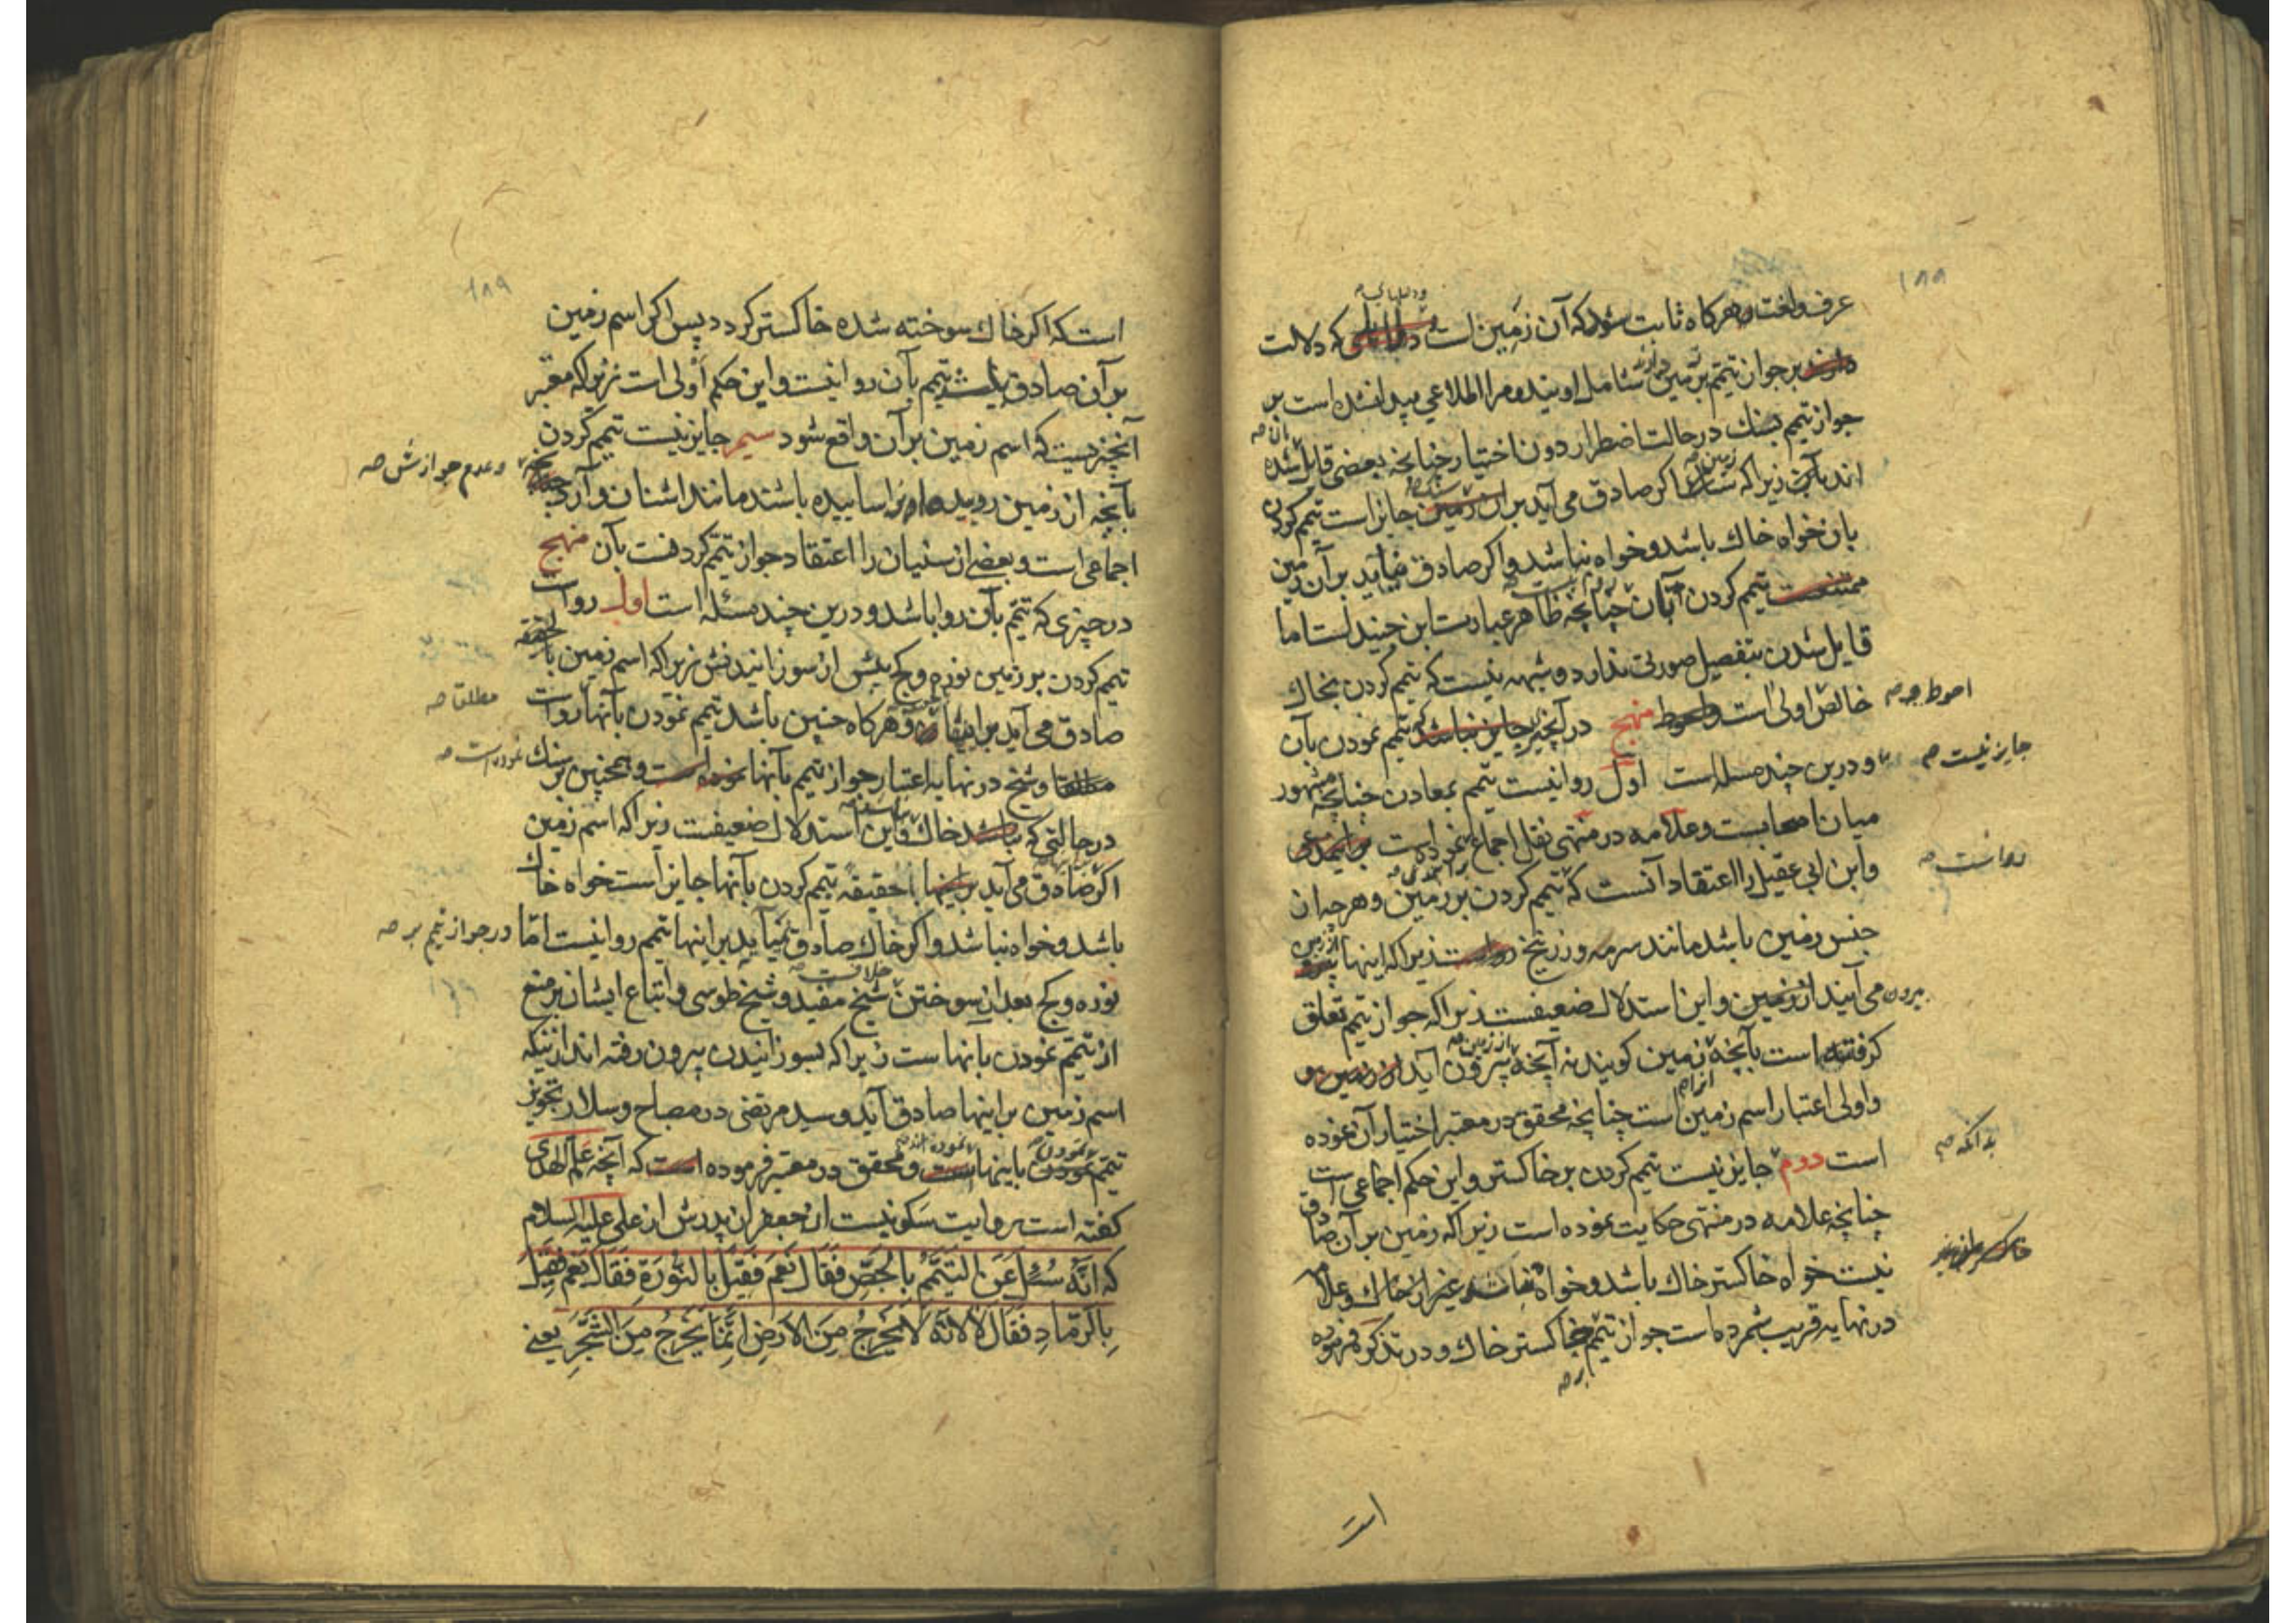 ۱۸۸
عرف ولغت وهرکاه ثابت شود که آن زمین است که دلالت
بر جواز تیمم بزمین شامل اویند ومرا اطلاعی پیدا نشده است بر
جواز تیمم بسنک در حالت اضطرار دون اختیار چنانچه بعضی قایل شده
اند بآن زیرا که اکر صادق می آید بران زمین جایز است تیمم کردن
بان خواه خاك باشد وخواه نباشد واکر صادق نیاید بر آن زمین
ممتنعست تیمم کردن بآن چنانچه ظاهر عبارت ابن جنید است اما
قایل شدن بتفصیل صورتی ندارد وشبهه نیست که تیمم کردن بخاك
خالص اولی است واحوط منهج در آنچیز جایز نباشد که تیمم نمودن بآن
احوط
جایز نیست صه
ودرین چند مسله است اول روا نیست تیمم بمعادن چنانچه مشهور
میان اصحابست وعلامه در منتهی نقل اجماع نموده است
وابن ابی عقیل را اعتقاد آنست که تیمم کردن بر زمین وهرچه از
رواست صه
جنس زمین باشد مانند سرمه وزرنیخ رواست زیرا که اینها از زمین
بیرون می آیند از زمین واین استدلال ضعیفست زیرا که جواز تیمم تعلق
کرفته است بآنچه زمین کویند نه آنچه بیرون آید از زمین
واولی اعتبار اسم زمین است چنانچه محقق در معتبر اختیار آن نموده
است دوم جایز نیست تیمم کردن بر خاکستر واین حکم اجماعی است
چنانچه علامه در منتهی حکایت نموده است زیرا که زمین بر آن صادق
نیست خواه خاکستر خاك باشد وخواه غیر از خاك وعلامه
در نهایه قریب شمرده است جواز تیمم بخاکستر خاك ودر تذکره فرموده
بر صه
است
۱۸۹
است که اکر خاك سوخته شده خاکستر کردد پس اکر اسم زمین
بر آن صادق تیمم بآن روا نیست واین حکم اولی است زیرا که معتبر
آنچیزیست که اسم زمین بر آن واقع شود سیم جایز نیست تیمم کردن
وعدم جوازش صه
بآنچه از زمین روییده اساییده باشند مانند اشنان وآرد
اجماعی است وبعضی از سنیان را اعتقاد جواز تیمم کردنست بآن منهج
در چیزی که تیمم بآن روا باشد ودرین چند مسئله است اول رواست
تیمم کردن بر زمین نوره وکج پیش از سوزانیدنش زیرا که اسم زمین بالحقیقه
صادق می آید بر اینها وهرکاه چنین باشد تیمم نمودن بآنها رواست
مطلقا صه
مطلقا وشیخ در نهایه اعتبار جواز تیمم بآنها نموده است وهمچنین بر سنك
نموده است صه
در حالتی که خاك واین استدلال ضعیفست زیرا که اسم زمین
اکر صادق می آید بر اینها حقیقه تیمم کردن بآنها جایز است خواه خاك
باشد وخواه نباشد واکر خاك صادق نمیآید بر اینها تیمم روا نیست اما
در جواز تیمم بر صه
نوره وکج بعد از سوختن خلافست صه شیخ مفید وشیخ طوسی واتباع ایشان بر منع
از تیمم نمودن بآنهاست زیرا که بسوزانیدن بیرون رفته اند از اینکه
اسم زمین بر اینها صادق آید وسید مرتضی در مصباح وسلار تجویز
تیمم نمودن باینها است ومحقق در معتبر فرموده است که آنچه علم الهدی
کفته است بروایت سکونیست از جعفر از پدرش از علی علیه السلام
که اِنَّهُ سُئِلَ عَنِ التَّیَمُّمِ بِالْجَصِّ فَقَالَ نَعَمْ فَقِیلَ بِالنُّورَةِ فَقَالَ نَعَمْ فَقِیلَ
بِالرَّمَادِ فَقَالَ لَا لِاَنَّهُ لَا یَخْرُجُ مِنَ الْاَرْضِ اِنَّمَا یَخْرُجُ مِنَ الشَّجَرِ یعنی